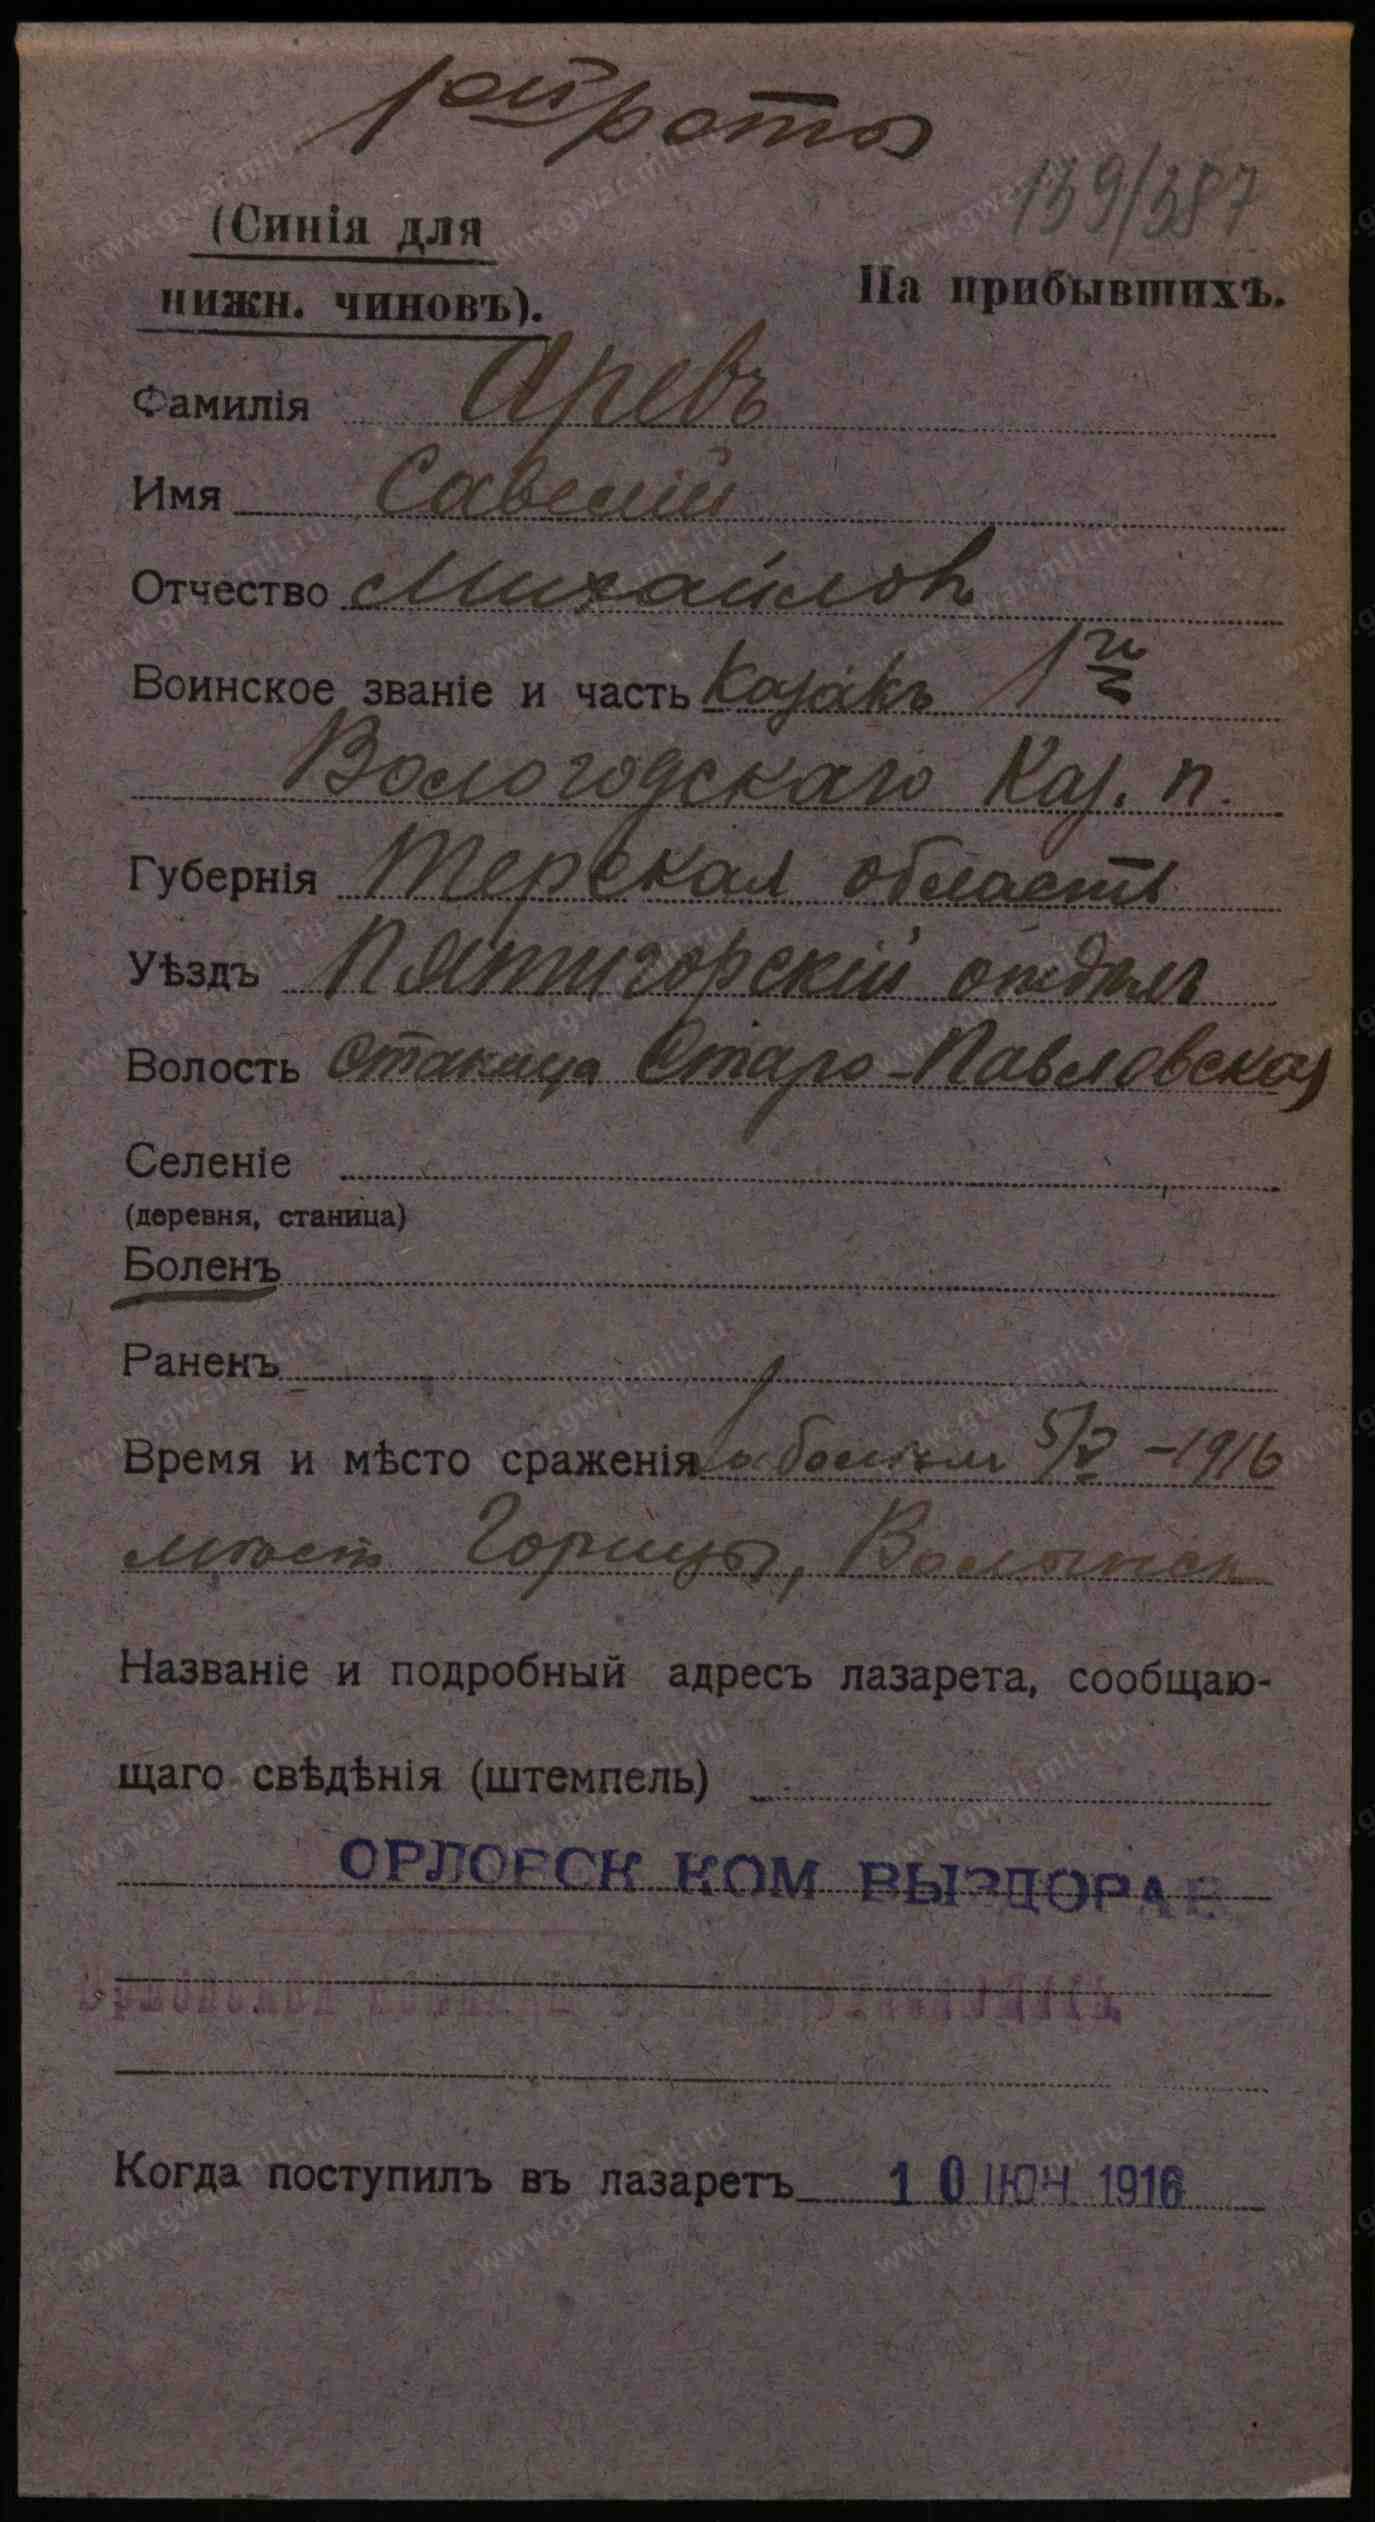 1ой роты
139/387
(Синія для
нижн. чиновъ).
На прибывшихъ.
Фамилія Аревъ
Имя Савелій
Отчество Михайловъ
Воинское званіе и часть Казакъ 1го
Вологодскаго Каз. п.
Губернія Терская область
Уѣздъ Пятигорскій отдѣлъ
Волость станица Старо-Павловская
Селеніе
(деревня, станица)
Боленъ
Раненъ
Время и мѣсто сраженія 5/V -1916
Горицы,
Названіе и подробный адресъ лазарета, сообщаю-
щаго свѣдѣнія (штемпель)
ОРЛОВСК КОМ ВЫЗДОРАВ
Когда поступилъ въ лазаретъ 10 ІЮН 1916
www.gwar.mil.ru